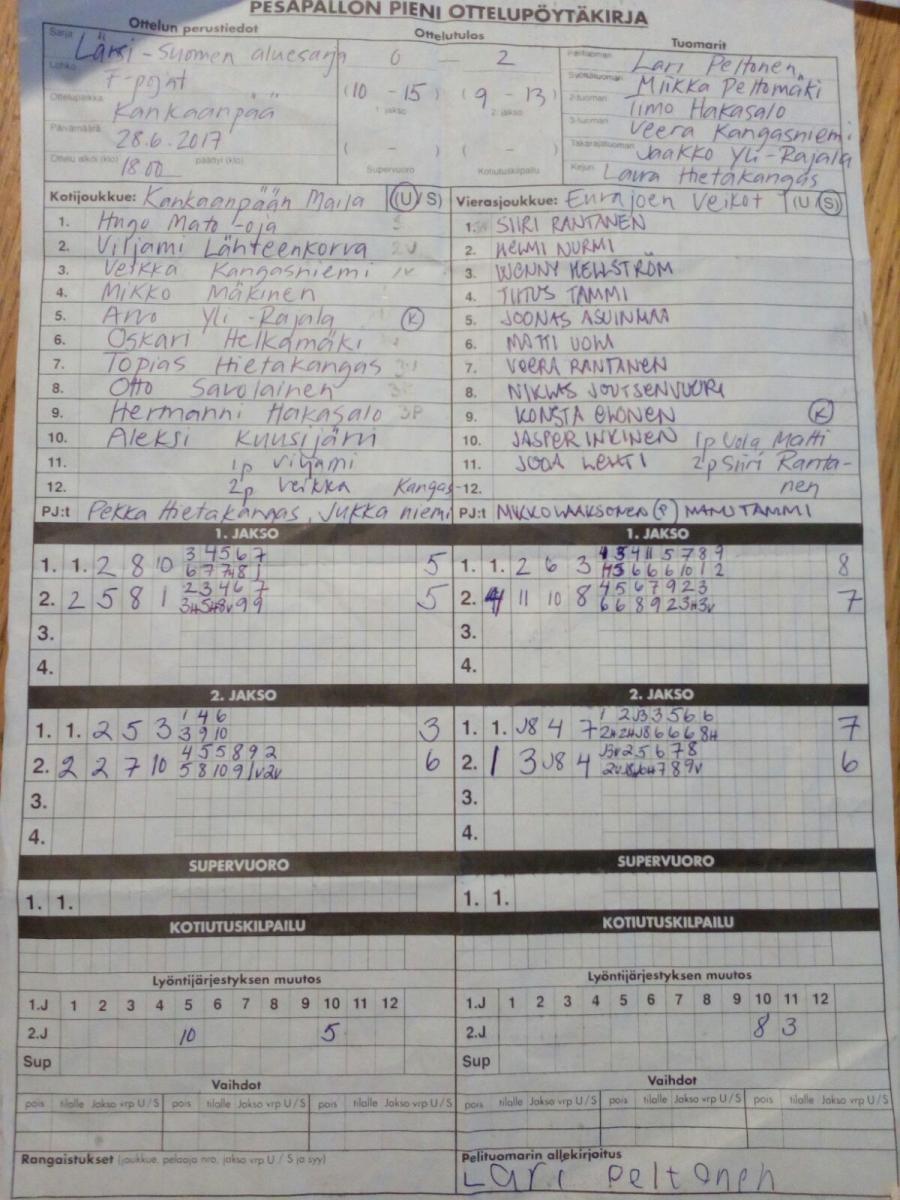 PESÄPALLON PIENI OTTELUPÖYTÄKIRJA
Ottelun perustiedot Ottelutulos Tuomarit
Sarja Länsi-Suomen aluesarja 0 - 2 Pelituomari Lari Peltonen
Lohko F-pojat (10 - 15) (9 - 13) Syöttötuomari Miikka Peltomäki
1. jakso 2. jakso 2-tuomari Timo Hakasalo
Ottelupaikka Kankaanpää 3-tuomari Veera Kangasniemi
Päivämäärä 28.6.2017 ( - ) ( - ) Takarajatuomari Jaakko Yli-Rajala
Ottelu alkoi (klo) 18.00 päättyi (klo) Supervuoro Kotiutuskilpailu Kirjuri Laura Hietakangas
Kotijoukkue: Kankaanpään Maila (U/S) Vierasjoukkue: Eurajoen Veikot (U/S)
1. Hugo Mato-oja 1. SIIRI RANTANEN
2. Viljami Lähteenkorva 2. HELMI NURMI
3. Veikka Kangasniemi 3. WENNY HELLSTRÖM
4. Mikko Mäkinen 4. TIITUS TAMMI
5. Arvo Yli-Rajala K 5. JOONAS ASUINMAA
6. Oskari Helkamäki 6. MATTI UOLA
7. Topias Hietakangas 7. VEERA RANTANEN
8. Otto Savolainen 8. NIKLAS JOUTSENVUORI
9. Hermanni Hakasalo 3P 9. KONSTA ELONEN K
10. Aleksi Kuusijärvi 10. JASPER INKINEN 1p Uola Matti
11. 1p Viljami 11. JOOA LEHTI 2p Siiri Ranta-
12. 2p Veikka Kangas- 12. nen
PJ:t Pekka Hietakangas, Jukka niemi PJ:t MIKKO LAAKSONEN (P) MANU TAMMI
1. JAKSO 1. JAKSO
3 4 5 6 7
1. 1. 2 8 10 5 1. 1. 2 6 3 8
2 3 4 6 7 4 5 6 7 9 2 3
2. 2 5 8 1 5 2. 4 11 10 8 7
3. 3.
4. 4.
2. JAKSO 2. JAKSO
1 4 6
1. 1. 2 5 3 3 9 10 3 1. 1. J8 4 7 7
4 5 5 8 9 2
2. 2 2 7 10 5 8 10 9 1v 2v 6 2. 1 3 J8 4 6
3. 3.
4. 4.
SUPERVUORO SUPERVUORO
1. 1. 1. 1.
KOTIUTUSKILPAILU KOTIUTUSKILPAILU
Lyöntijärjestyksen muutos Lyöntijärjestyksen muutos
1.J 1 2 3 4 5 6 7 8 9 10 11 12 1.J 1 2 3 4 5 6 7 8 9 10 11 12
2.J 10 5 2.J 8 3
Sup Sup
Vaihdot Vaihdot
pois tilalle Jakso vrp U/S pois tilalle Jakso vrp U/S pois tilalle Jakso vrp U/S pois tilalle Jakso vrp U/S pois tilalle Jakso vrp U/S pois tilalle Jakso vrp U/S
Rangaistukset (joukkue, pelaaja nro, jakso vrp U / S ja syy) Pelituomarin allekirjoitus
Lari Peltonen